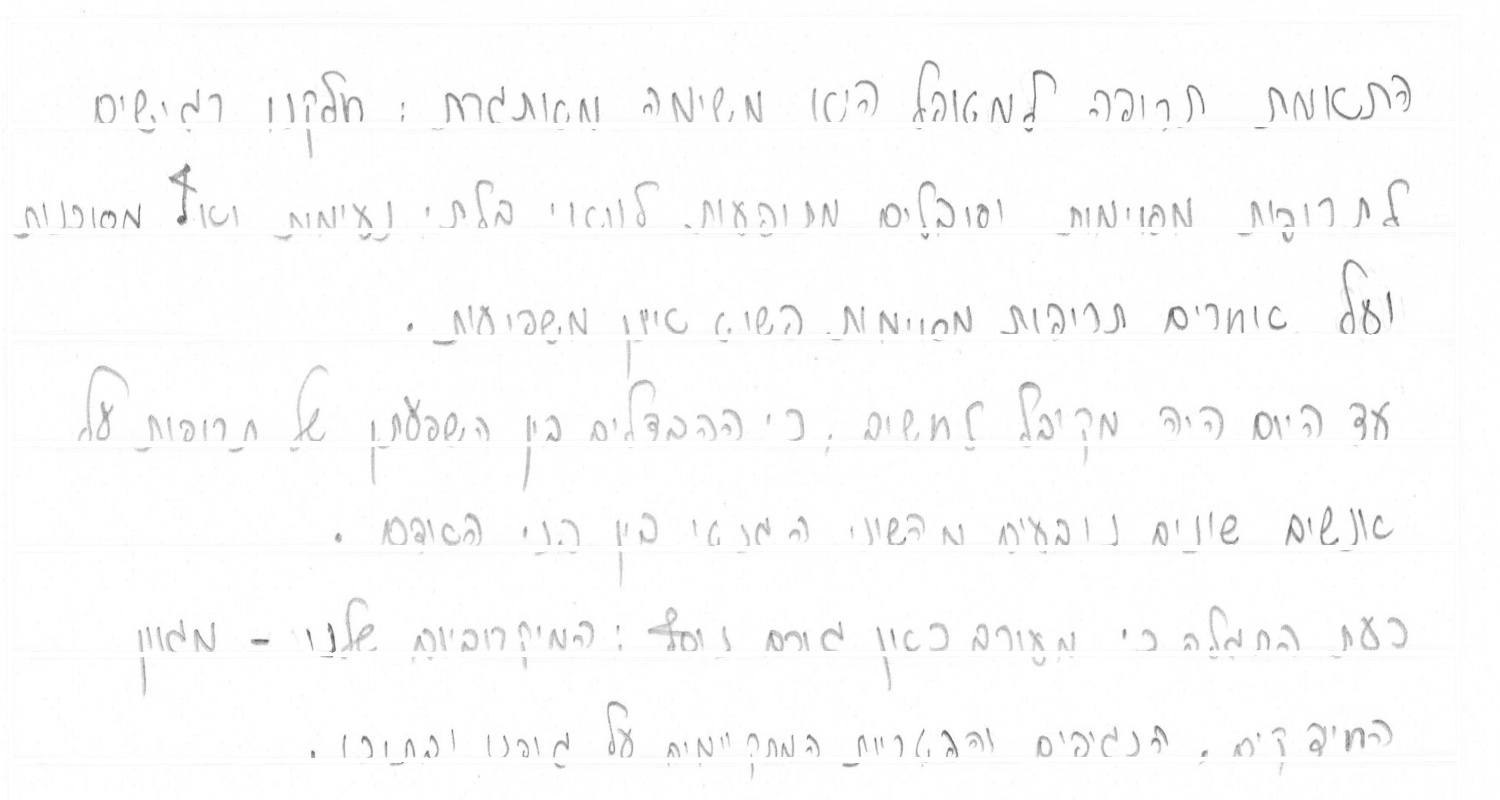 התאמת תרופה למאכל היא משימה מאתגרת : חלקנו רגישים
לתרופות מסוימות וסובלים מתופעות לוואי בלתי נעימות ואף מסוכנות
ועל אחרים תרופות מסויימות השוא אינן משפיעות .
עד היום היה מקובל לחשוב , כי ההבדלים בין השפעתן של תרופות על
אנשים שונים נובעים מהשוני הגנטי בין בני האדם .
כעת התגלה כי מעורב כאן גורם נוסף : המיקרוביום שלנו - מגוון
החיידקים , הנגיפים והפטריות המתקיימים על גופנו ובתוכו .